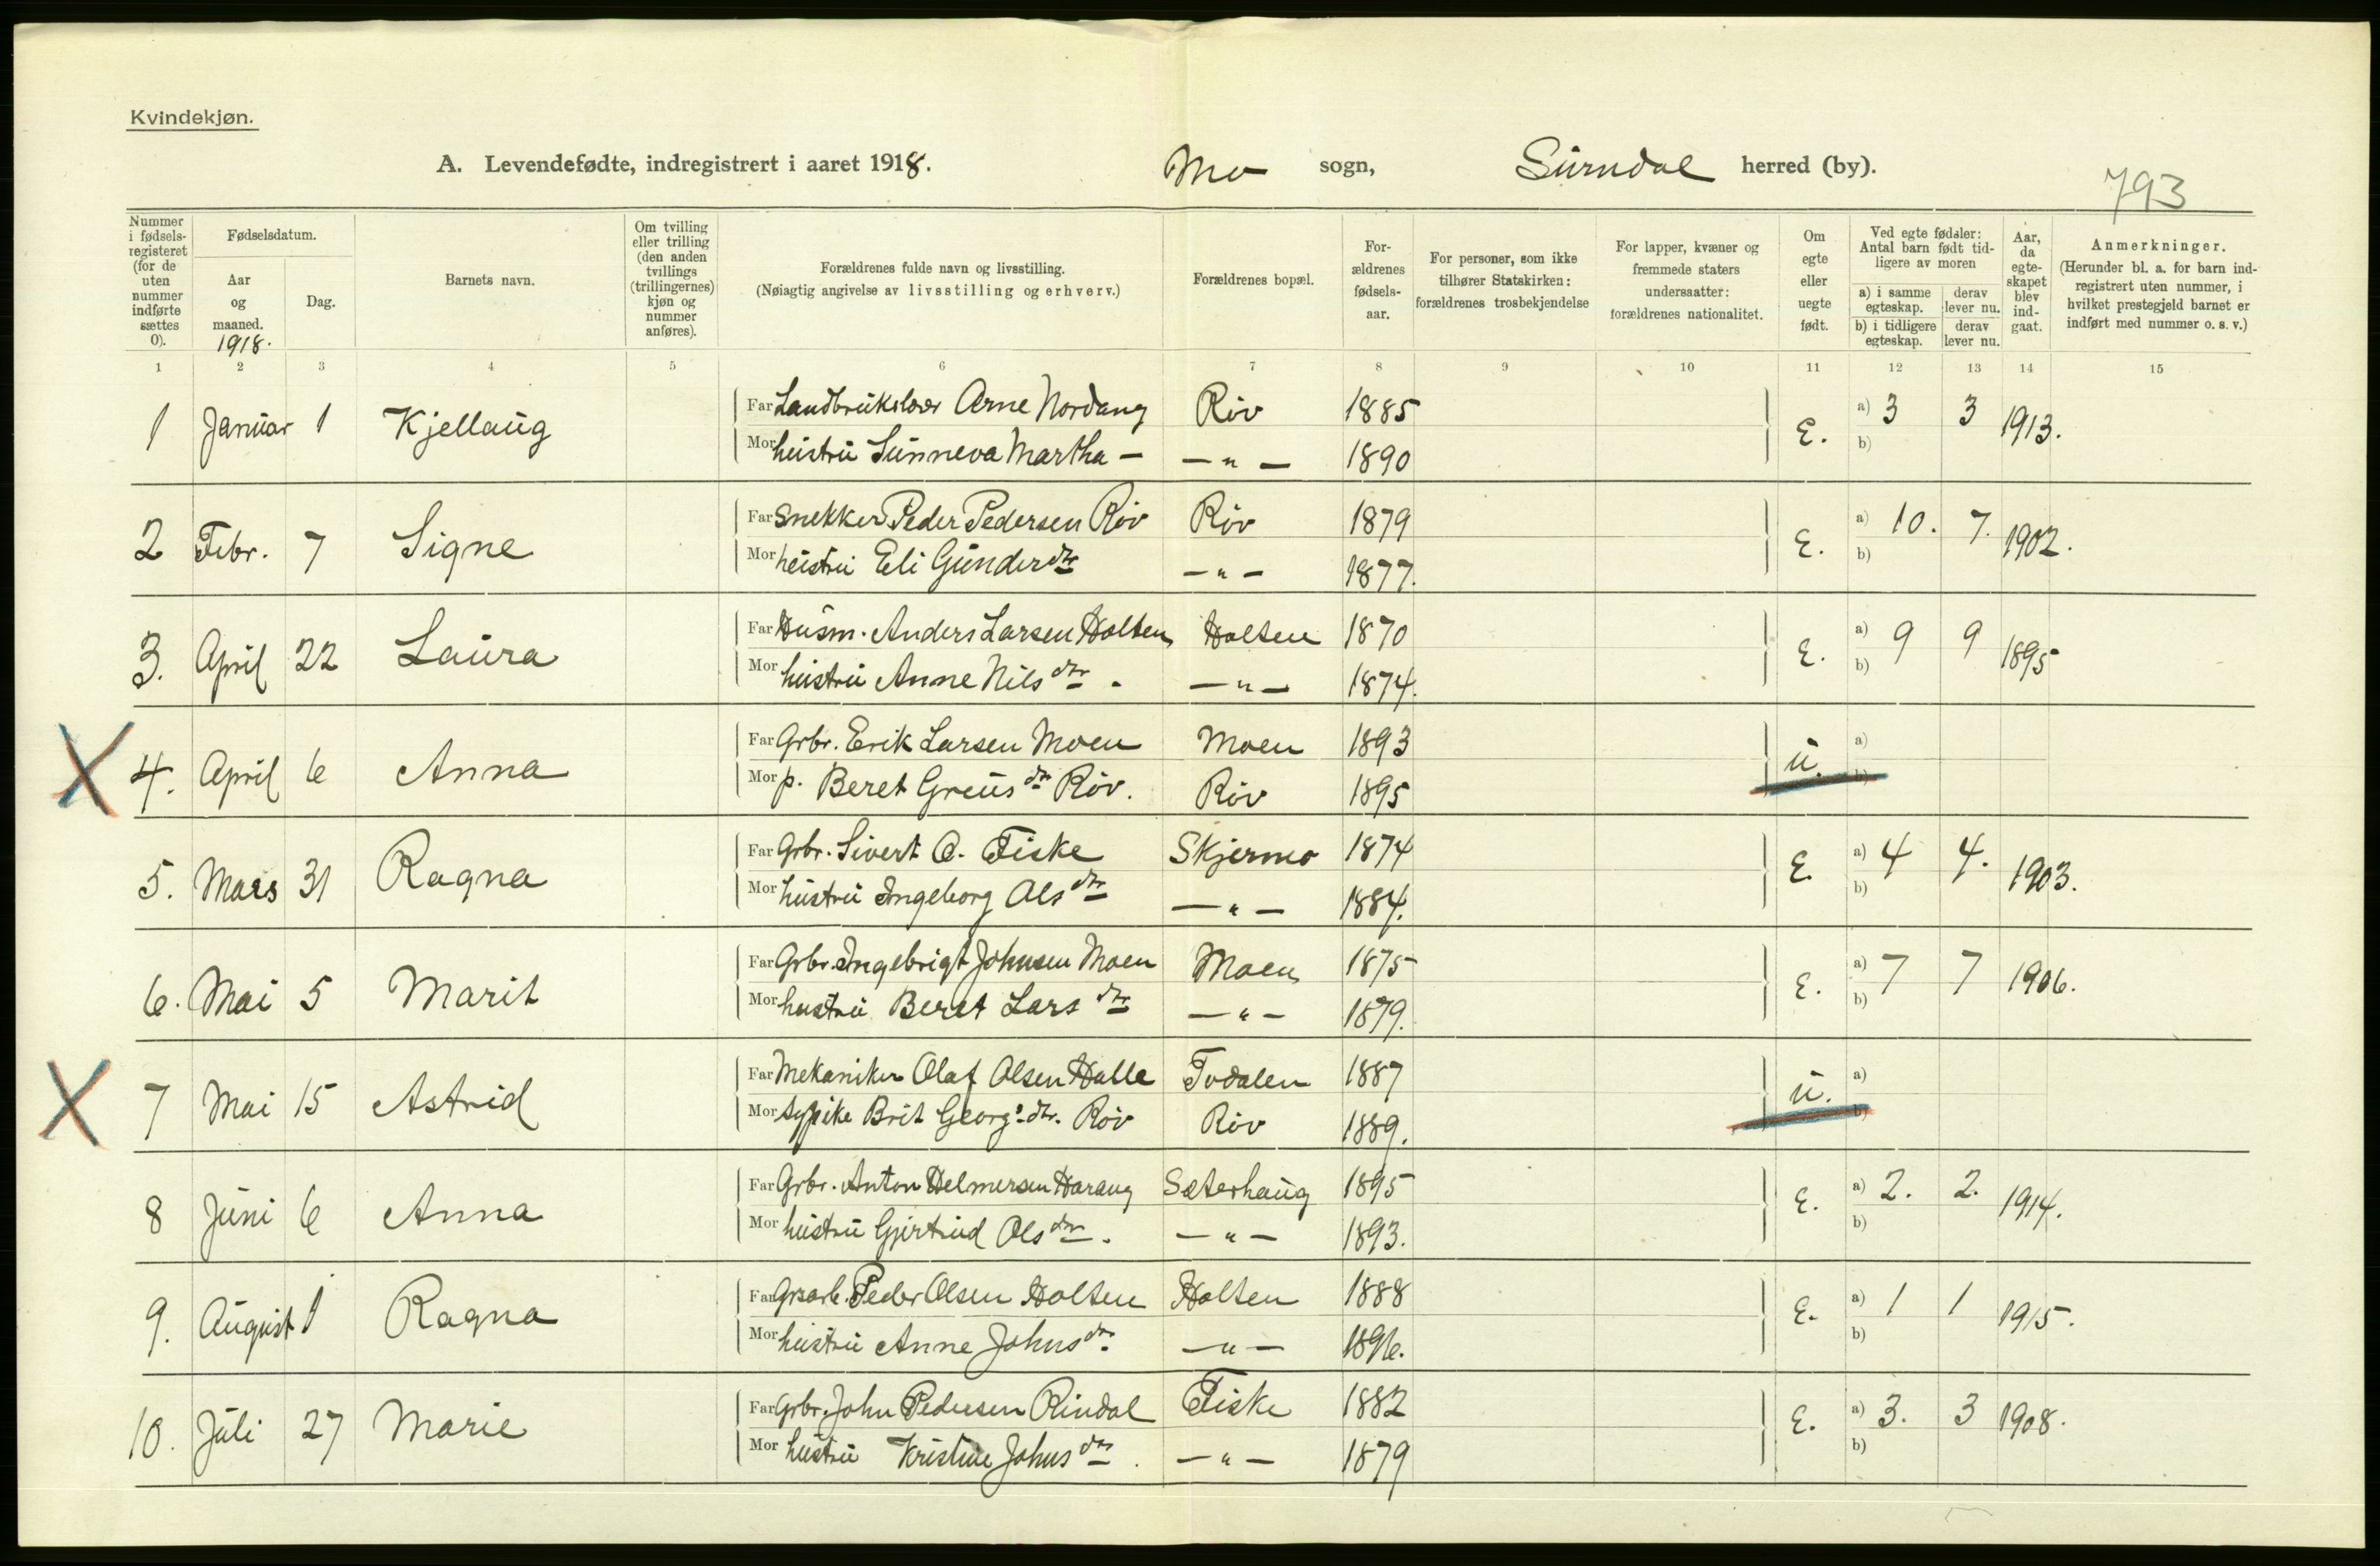 Kvindekjøn.
A. Levendefødte, indregistrert i aaret 1918. Mo sogn, Surndal herred (by).
793
Nummer i fødsels-registeret (for de uten nummer indførte sættes 0).
Fødselsdatum.
Aar og maaned. 1918.
Dag.
Barnets navn.
Om tvilling eller trilling (den anden tvillings (trillingernes) kjøn og nummer anføres).
Forældrenes fulde navn og livsstilling. (Nøiagtig angivelse av livsstilling og erhverv.)
Forældrenes bopæl.
For-ældrenes fødsels-aar.
For personer, som ikke tilhører Statskirken: forældrenes trosbekjendelse
For lapper, kvæner og fremmede staters undersaatter: forældrenes nationalitet.
Om egte eller uegte født.
Ved egte fødsler: Antal barn født tid-ligere av moren
a) i samme egteskap. derav lever nu.
b) i tidligere egteskap. derav lever nu.
Aar, da egte-skapet blev ind-gaat.
Anmerkninger. (Herunder bl. a. for barn ind-registrert uten nummer, i hvilket prestegjeld barnet er indført med nummer o. s. v.)
1 2 3 4 5 6 7 8 9 10 11 12 13 14 15
1 Januar 1 Kjellaug Far Landbrukslær Arne Nordang Røv 1885 E. a) 3 3 1913.
Mor hustru Sunneva Martha — — " — 1890 b)
2 Febr. 7 Signe Far Snekker Peder Pedersen Røv Røv 1879 E. a) 10. 7. 1902.
Mor hustru Eli Gunderdtr — " — 1877. b)
3. April 22 Laura Far Husm. Anders Larsen Holten Holten 1870 E. a) 9 9 1895
Mor hustru Anne Nilsdtr. — " — 1874. b)
X 4. April 6 Anna Far Grbr. Erik Larsen Moen Moen 1893 u. a)
Mor p. Beret Greusdtr Røv. Røv 1895 b)
5. Mars 31 Ragna Far Grbr. Sivert O. Fiske Skjermo 1874 E. a) 4 4. 1903.
Mor hustru Ingeborg Olsdtr — " — 1884. b)
6. Mai 5 Marit Far Grbr. Ingebrigt Johnsen Moen Moen 1875 E. a) 7 7 1906.
Mor hustru Beret Larsdtr — " — 1879. b)
X 7 Mai 15 Astrid Far Mekaniker Olaf Olsen Halle Todalen 1887 u. a)
Mor sypike Brit Georgsdtr. Røv Røv 1889. b)
8 Juni 6 Anna Far Grbr. Anton Helmersen Harang Sæterhaug 1895 E. a) 2. 2. 1914.
Mor hustru Gjertrud Olsdtr. — " — 1893. b)
9. August 1 Ragna Far Grsarb. Peder Olsen Holten Holten 1888 E. a) 1 1 1915.
Mor hustru Anne Johnsdtr. — " — 1896. b)
10. Juli 27 Marie Far Grbr. John Pedersen Rindal Fiske 1882 E. a) 3. 3 1908.
Mor hustru Kristine Johnsdtr. — " — 1879 b)